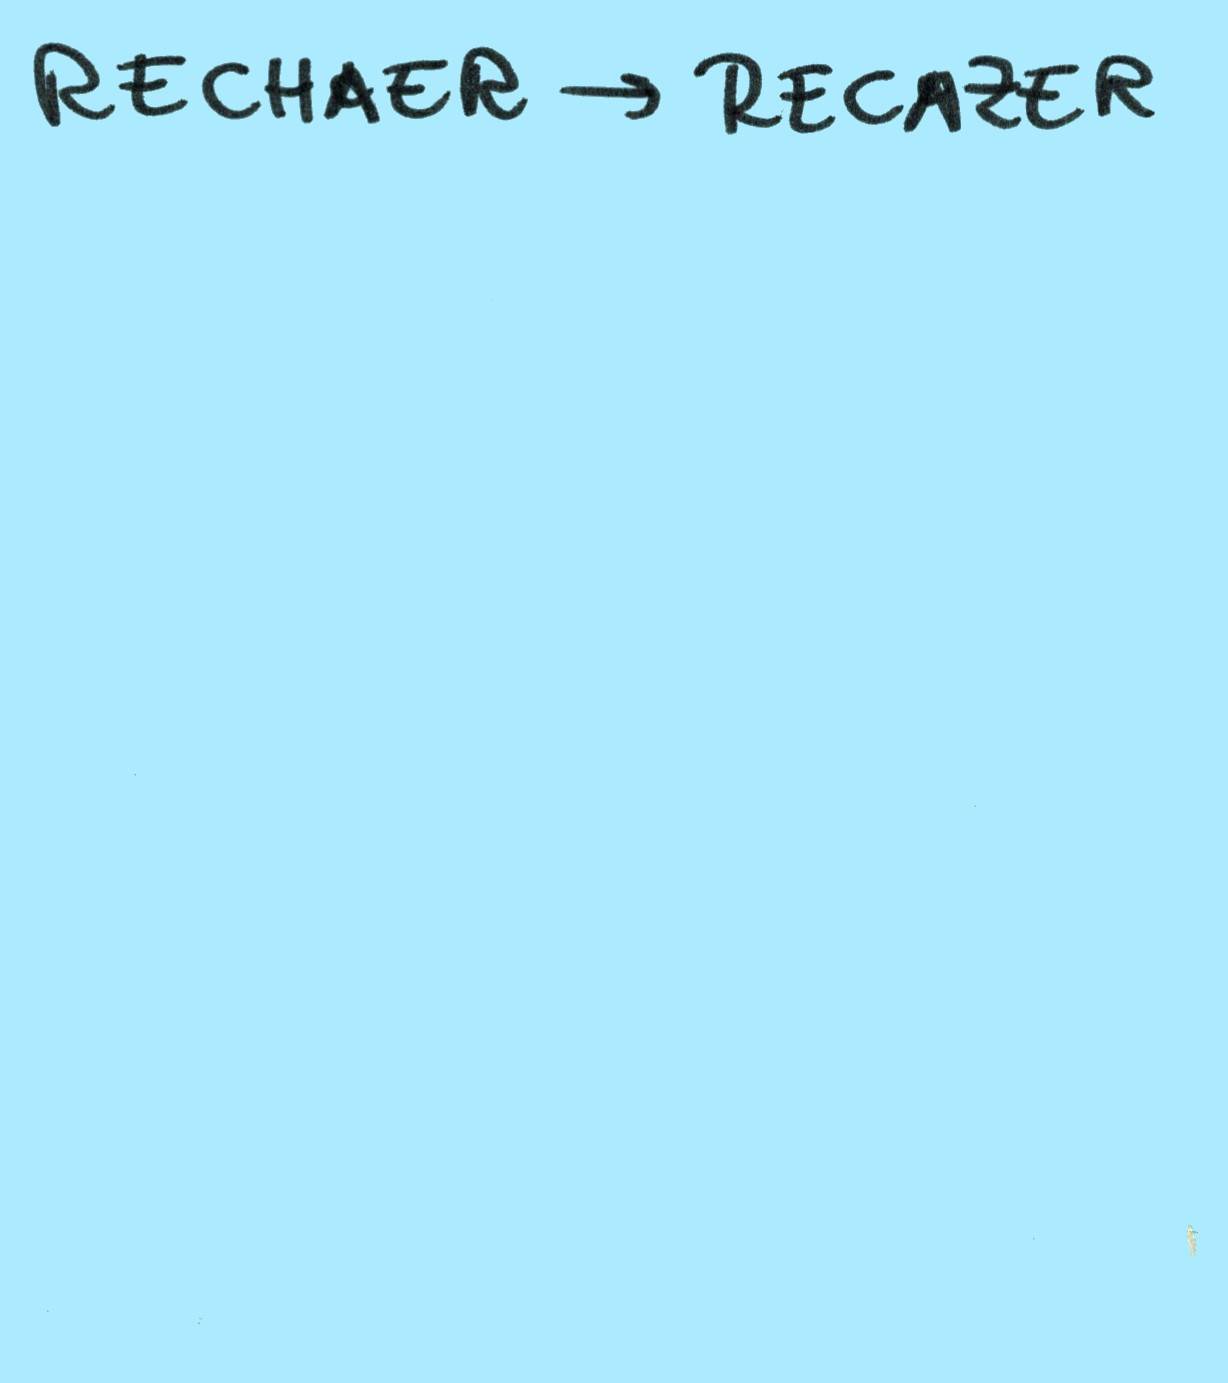 RECHAER → RECAZER